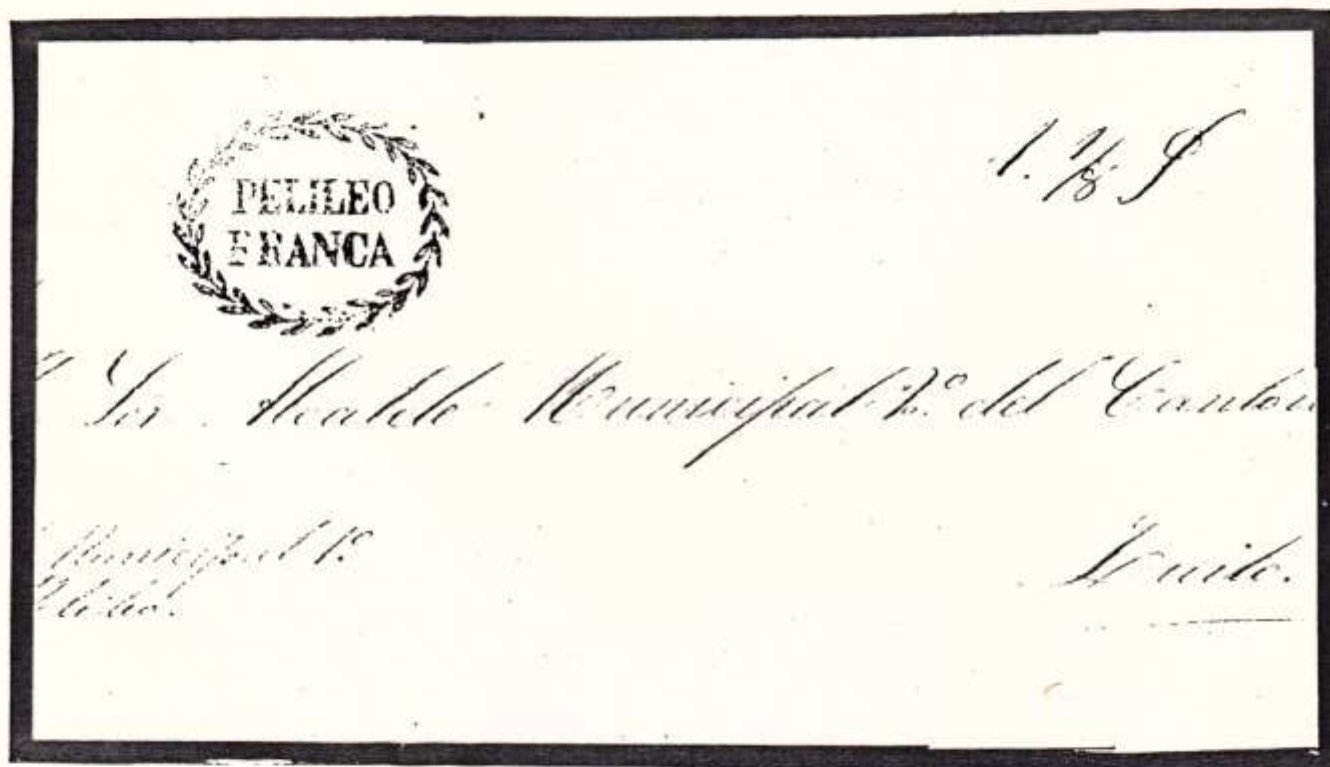 PELILEO
FRANCA
1. 1/8 S
Sor. Alcalde Municipal 2º del Canton
Municipal 1º
Quito.